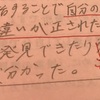 することで自分の
違いが正された
発見できたり
分かった。